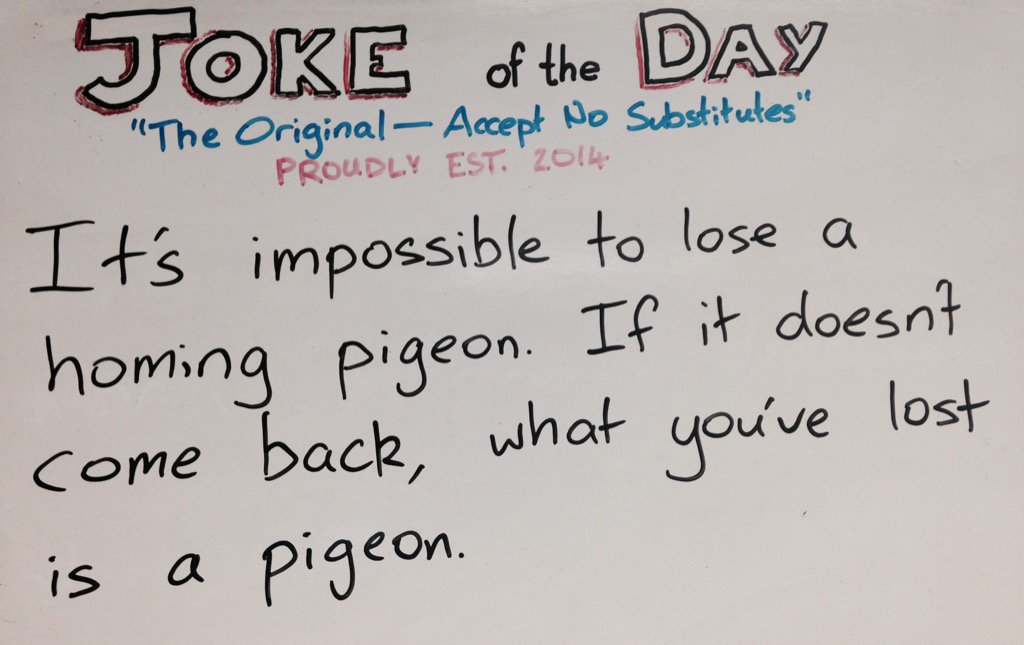 JOKE of the DAY
"The Original — Accept No Substitutes"
PROUDLY EST. 2014
It's impossible to lose a
homing pigeon. If it doesn't
come back, what you've lost
is a pigeon.